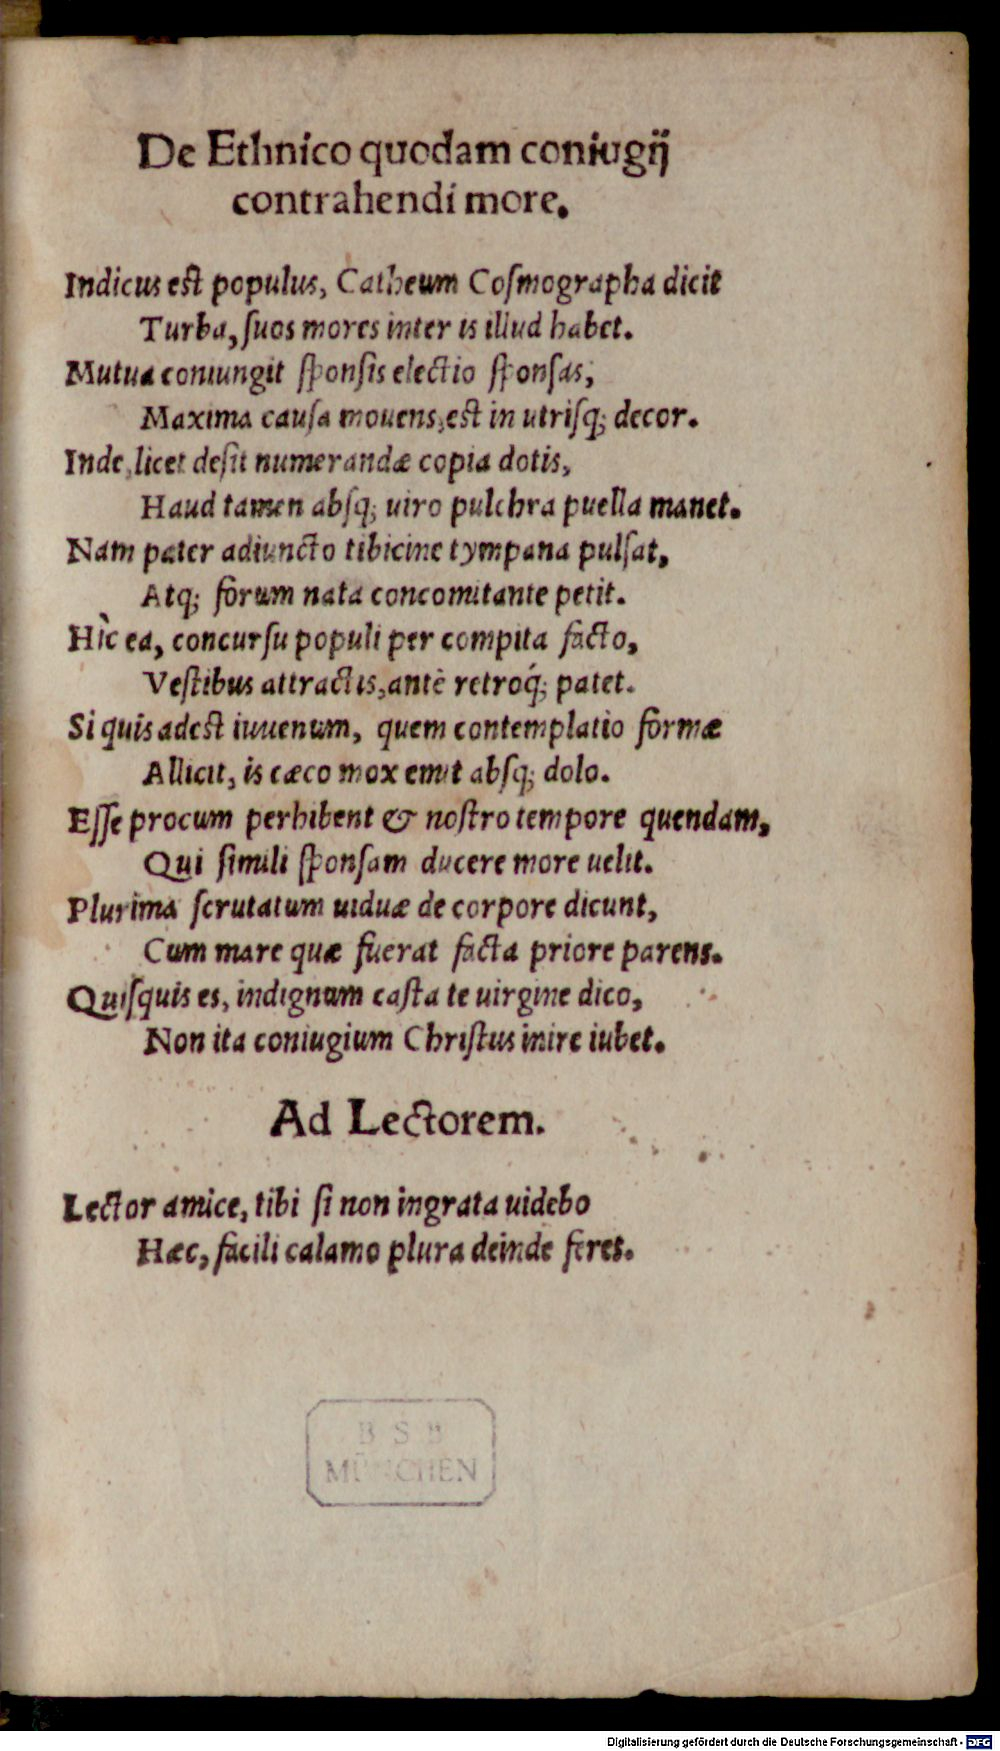 De Ethnico quodam coniugij
contrahendi more.
Indicus est populus, Catheum Cosmographa dicit
Turba, suos mores inter is illud habet.
Mutua coniungit sponsis electio sponsas,
Maxima causa mouens, est in utrisq; decor.
Inde, licet desit numerandæ copia dotis,
Haud tamen absq; uiro pulchra puella manet.
Nam pater adiuncto tibicine tympana pulsat,
Atq; forum nata concomitante petit.
Hìc ea, concursu populi per compita facto,
Vestibus attractis, antè retroq́; patet.
Si quis adest iuuenum, quem contemplatio formæ
Allicit, is cæco mox emit absq; dolo.
Esse procum perhibent & nostro tempore quendam,
Qui simili sponsam ducere more uelit.
Plurima scrutatum uiduæ de corpore dicunt,
Cum mare quæ fuerat facta priore parens.
Quisquis es, indignum casta te uirgine dico,
Non ita coniugium Christus inire iubet.
Ad Lectorem.
Lector amice, tibi si non ingrata uidebo
Hæc, facili calamo plura deinde feres.
B S B
MÜNCHEN
Digitalisierung gefördert durch die Deutsche Forschungsgemeinschaft - DFG